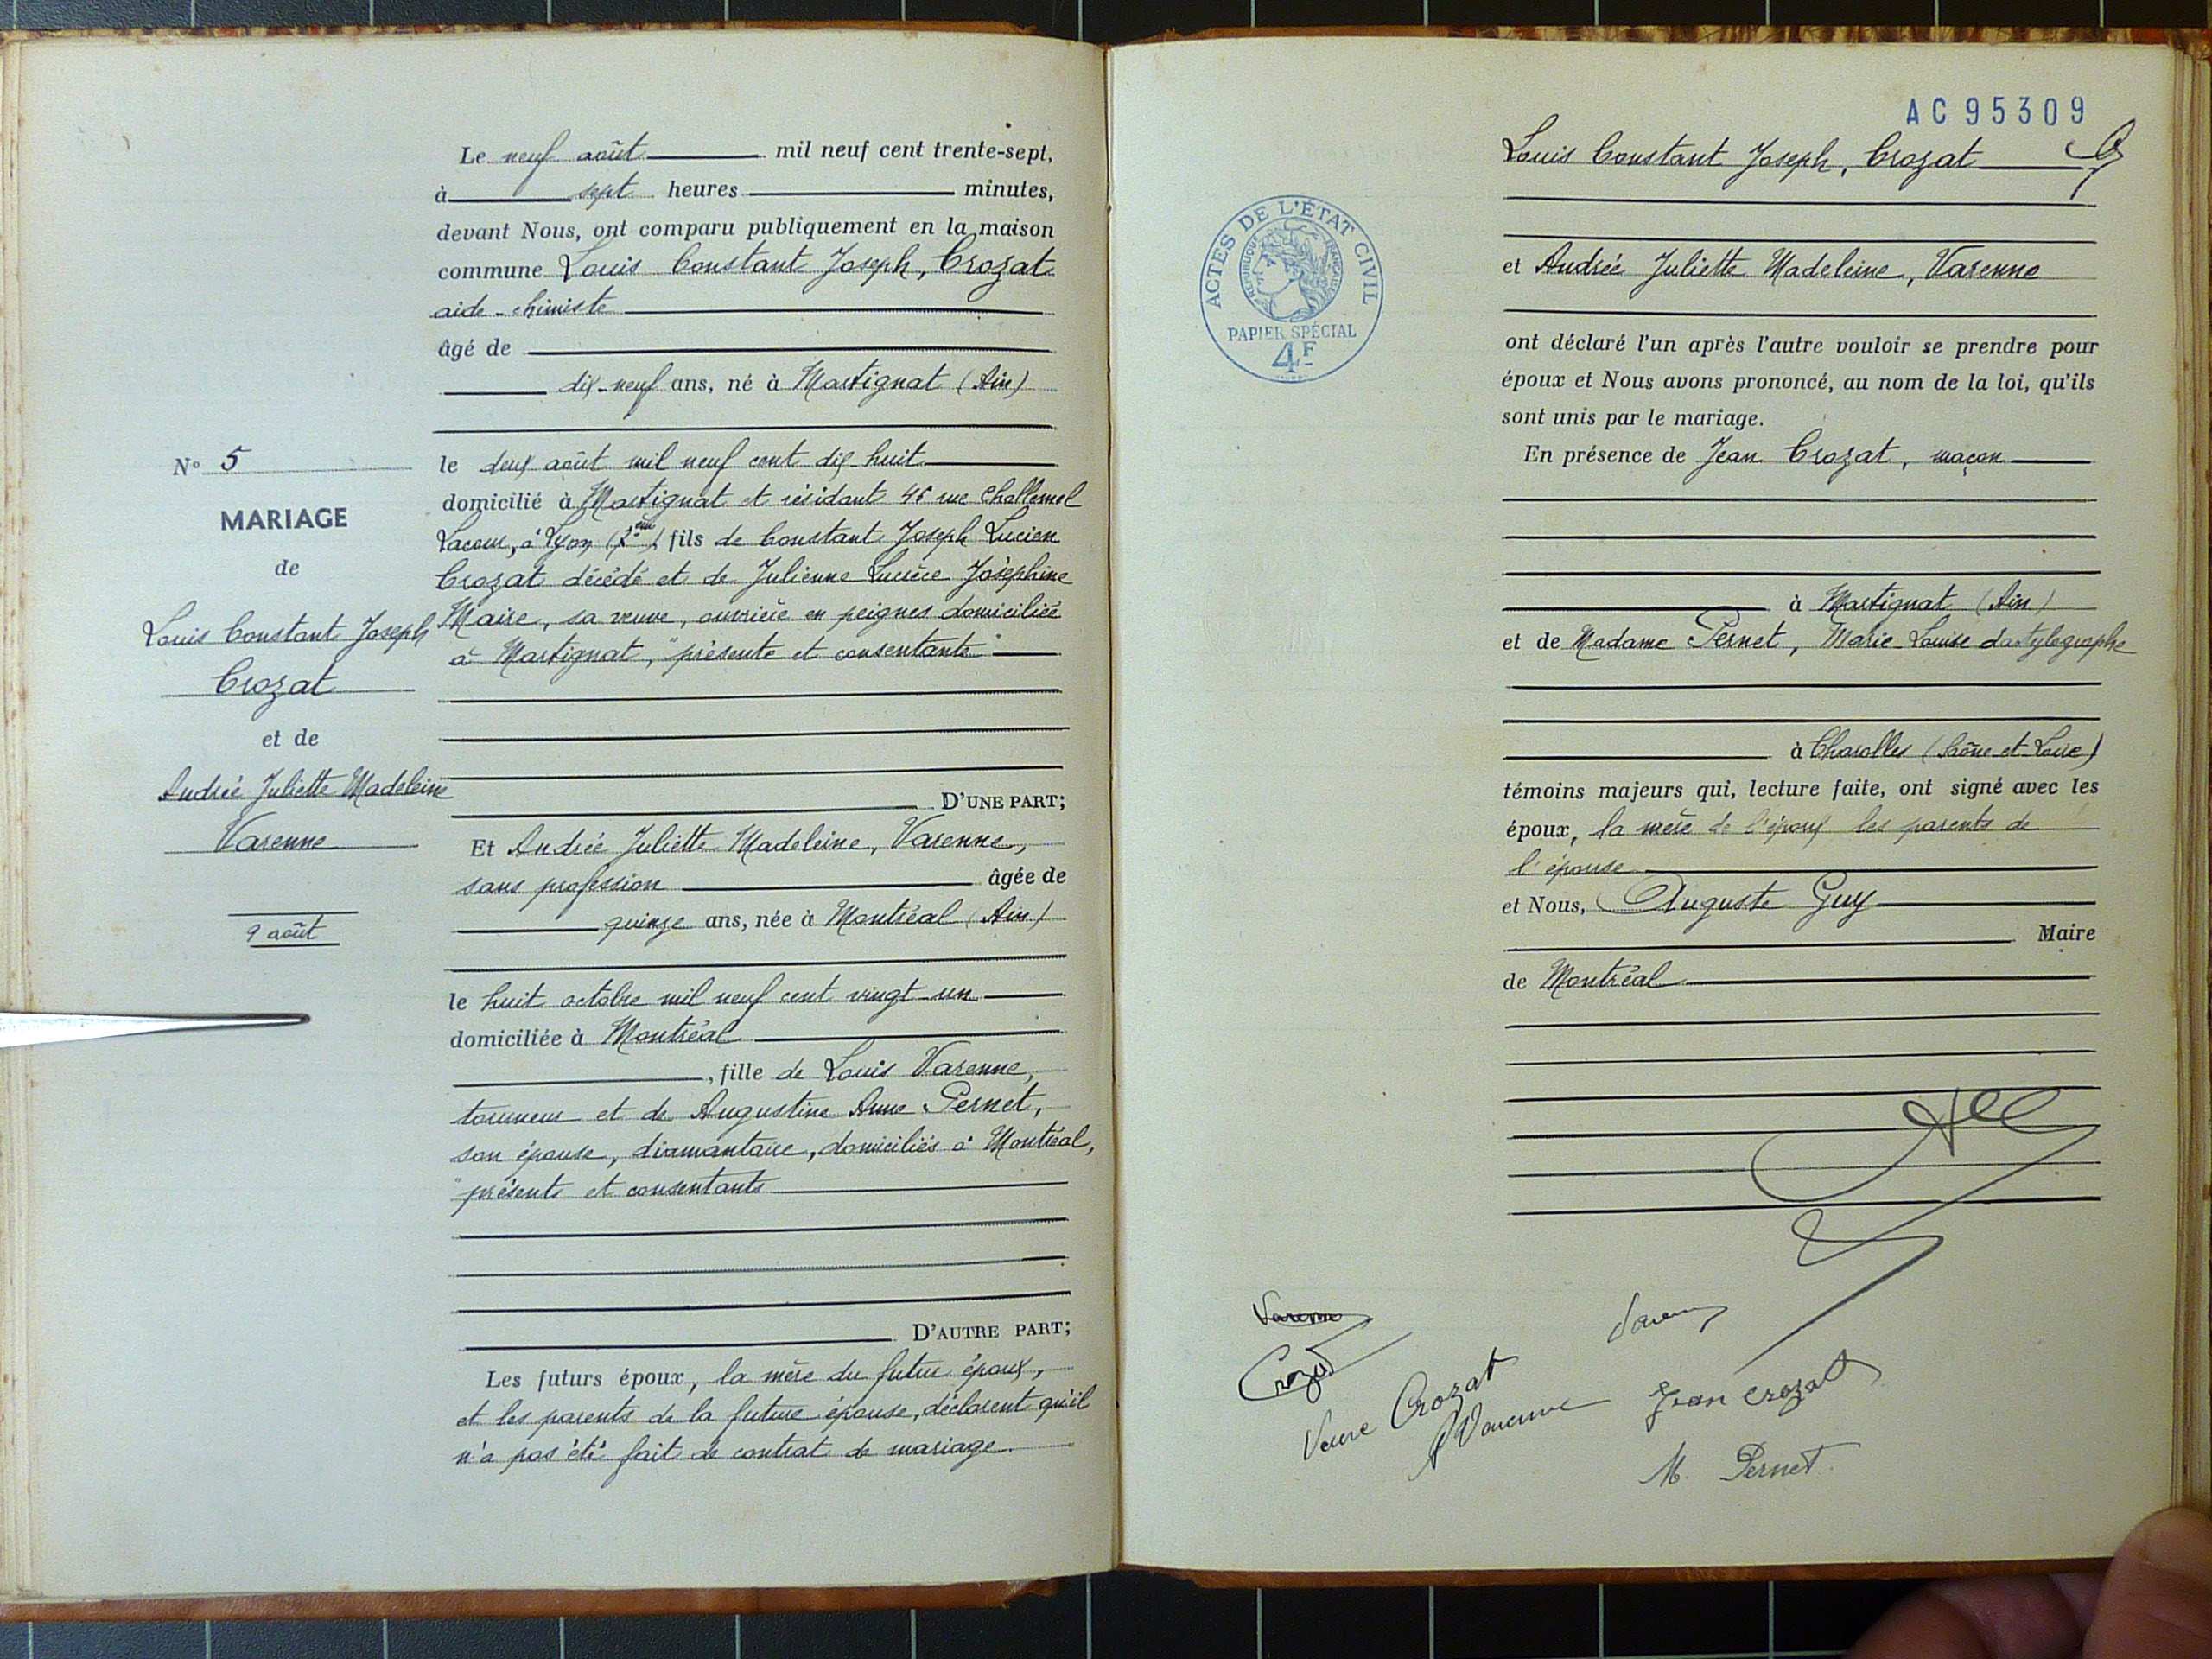 Le neuf août mil neuf cent trente-sept,
à sept heures minutes,
devant Nous, ont comparu publiquement en la maison
commune Louis Constant Joseph, Crozat
aide-chimiste
âgé de
dix-neuf ans, né à Martignat (Ain)
le deux août mil neuf cent dix-huit
domicilié à Martignat et résidant 46 rue Challemel
Lacour, à Lyon fils de Constant Joseph Lucien
Crozat décédé et de Julienne Lucrèce Joséphine
Maire, sa veuve, ouvrière en peignes domiciliée
à Martignat, "présente et consentante"
D'UNE PART;
Et Andrée Juliette Madeleine, Varenne,
sans profession âgée de
quinze ans, née à Montréal (Ain)
le huit octobre mil neuf cent vingt-un
domiciliée à Montréal
, fille de Louis Varenne,
tourneur et de Augustine Anne Pernet,
son épouse, diamantaire, domiciliés à Montréal,
"présents et consentants
D'AUTRE PART;
Les futurs époux, la mère du futur époux,
et les parents de la future épouse, déclarent qu'il
n'a pas été fait de contrat de mariage.
N° 5
MARIAGE
de
Louis Constant Joseph
Crozat
et de
Andrée Juliette Madeleine
Varenne
9 août
AC 95309
Louis Constant Joseph, Crozat
et Andrée Juliette Madeleine, Varenne
ont déclaré l'un après l'autre vouloir se prendre pour
époux et Nous avons prononcé, au nom de la loi, qu'ils
sont unis par le mariage.
En présence de Jean Crozat, maçon
à Martignat (Ain)
et de Madame Pernet, Marie-Louise dactylographe
à Charolles (Saône-et-Loire)
témoins majeurs qui, lecture faite, ont signé avec les
époux, la mère de l'époux les parents de
l'épouse
et Nous, Auguste Guy
Maire
de Montréal
ACTES DE L'ÉTAT CIVIL
RÉPUBLIQUE FRANÇAISE
PAPIER SPÉCIAL
4F
Varenne
Crozat
Veuve Crozat
A Varenne
Jean Crozat
M. Pernet